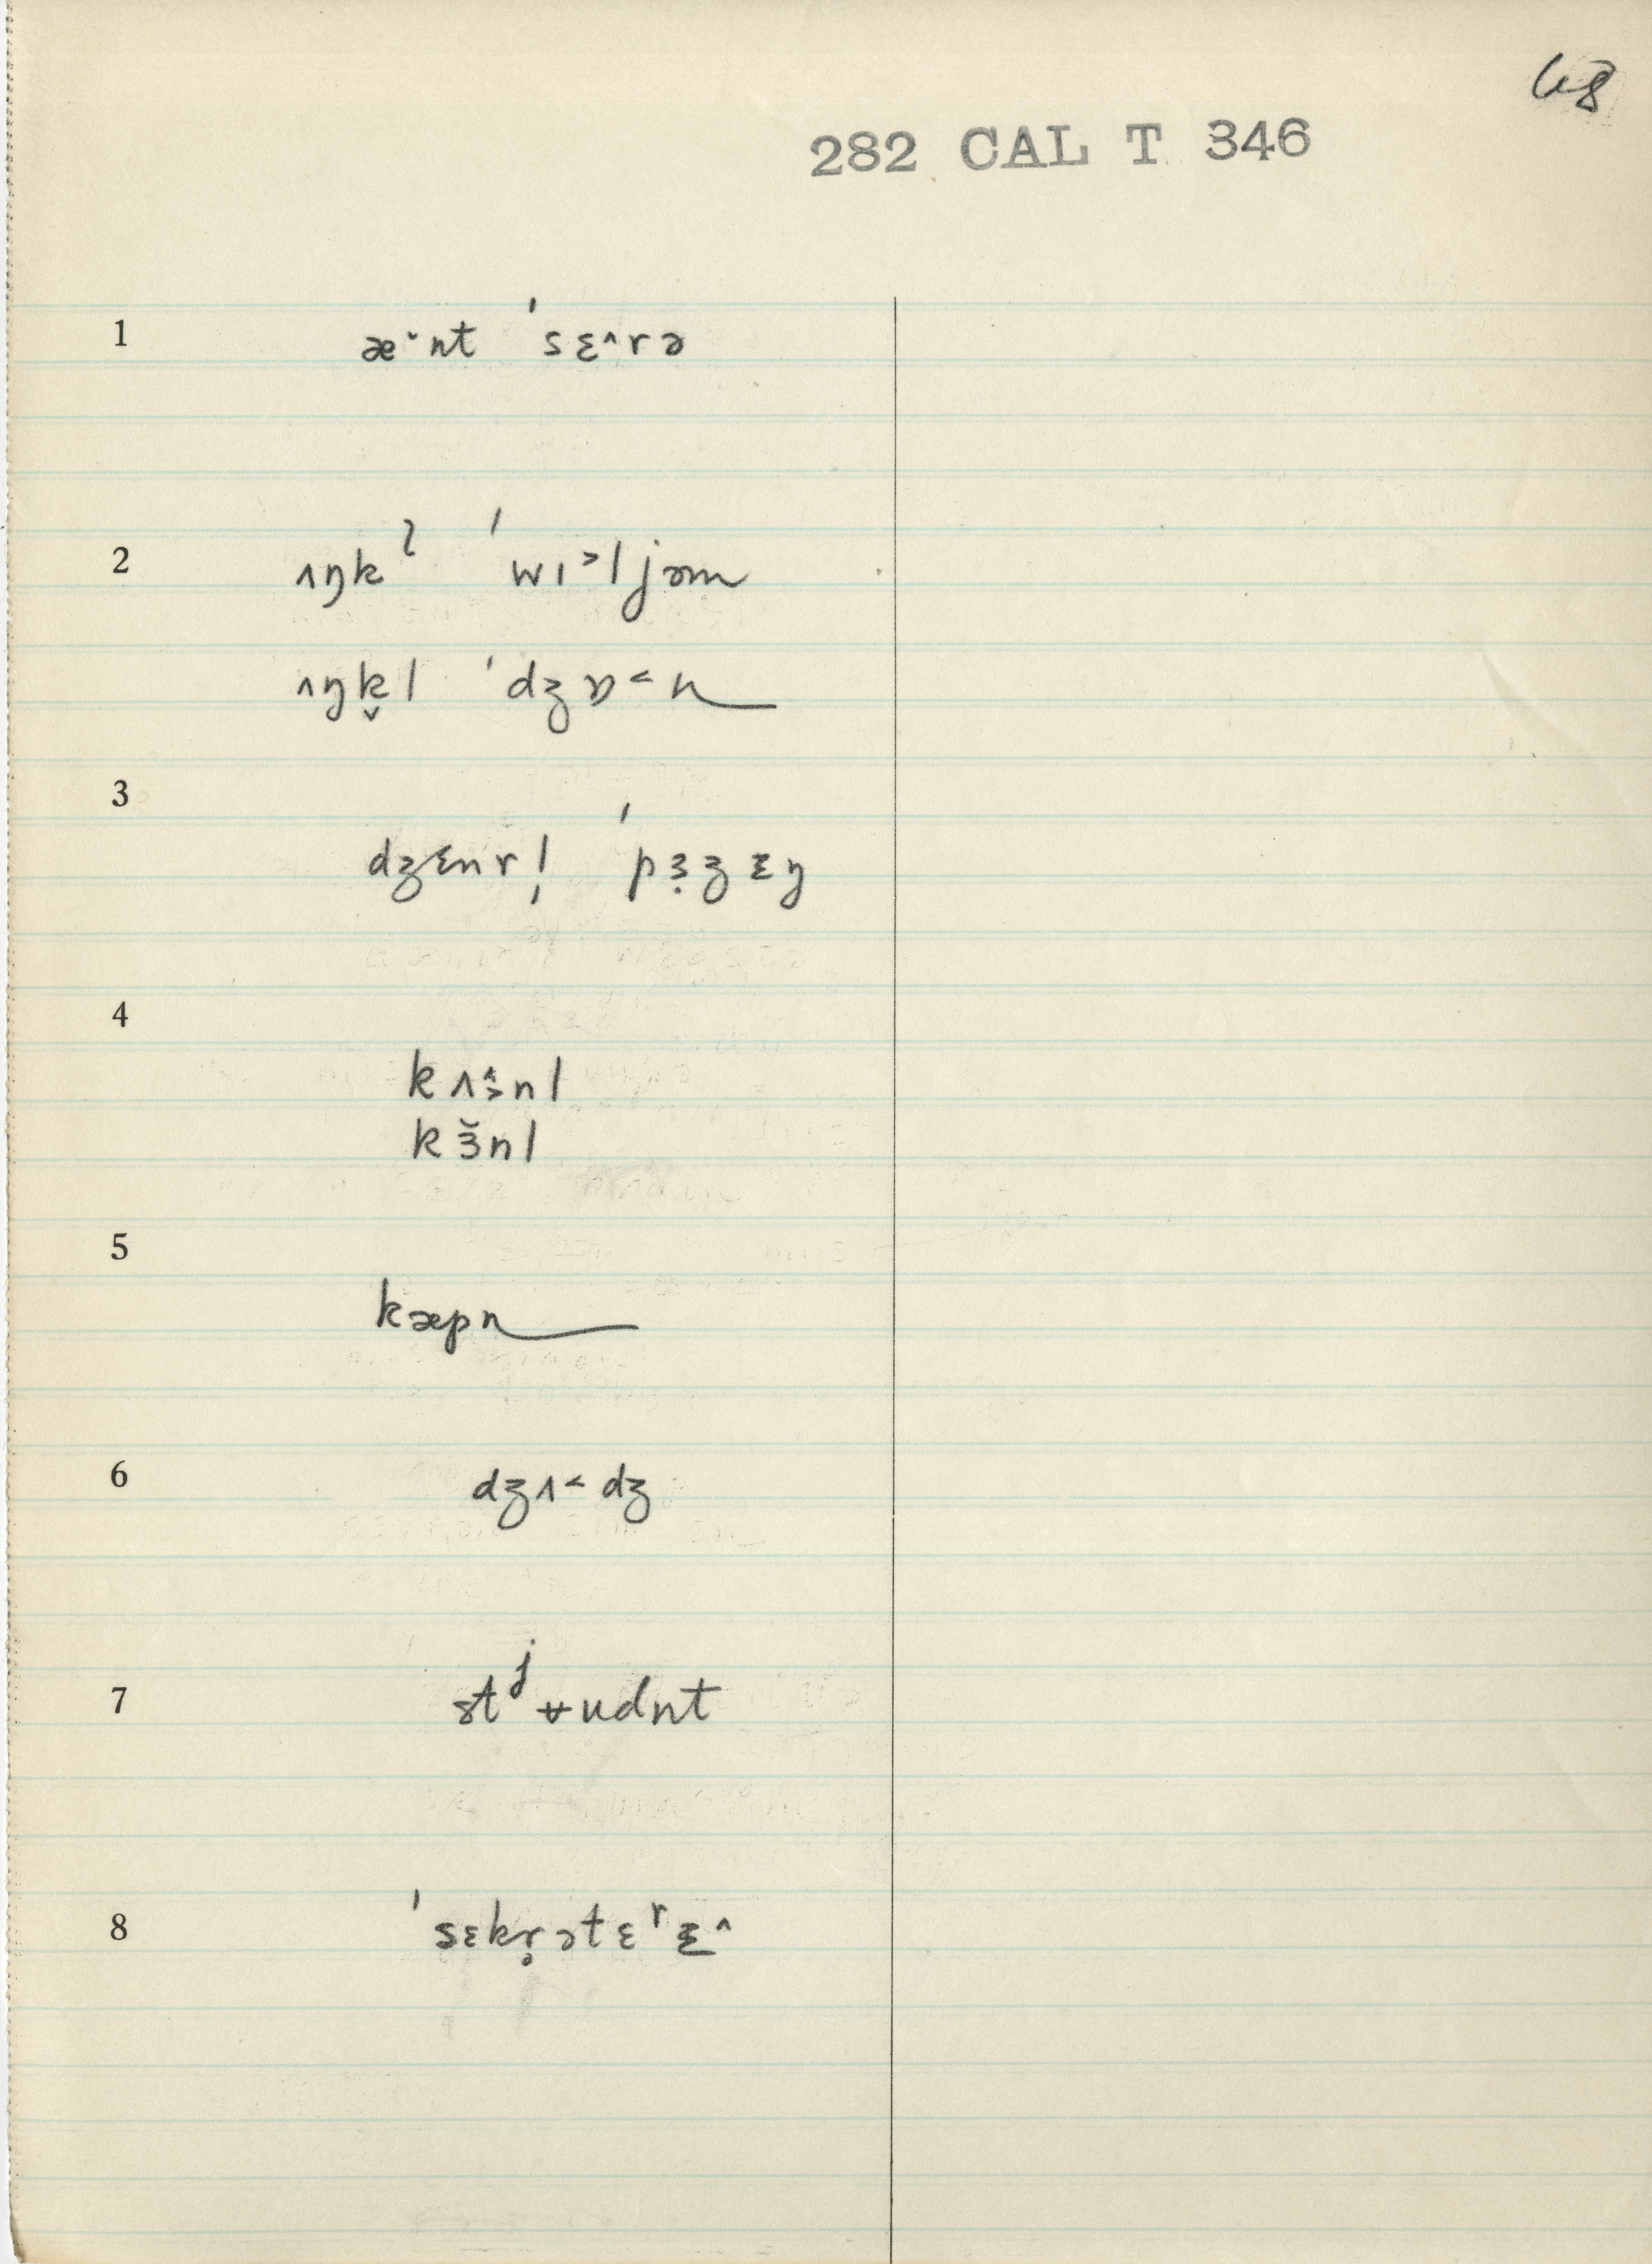 68
282 CAL T 346
1 æˑnt ˈsɛ^rə
2 ʌŋkˀ ˈwɪ˃ljəm
ʌŋk̬l ˈdʒɒ˂n
3 dʒɛnrl̩ ˈpɜ̣ʒɛŋ
4 kʌ̂˃nl
kɜ̆nl
5 kæpn
6 dʒʌ˂dʒ
7 stʲʉudnt
8 ˈsɛkr̥ətɛʳɛ̱^